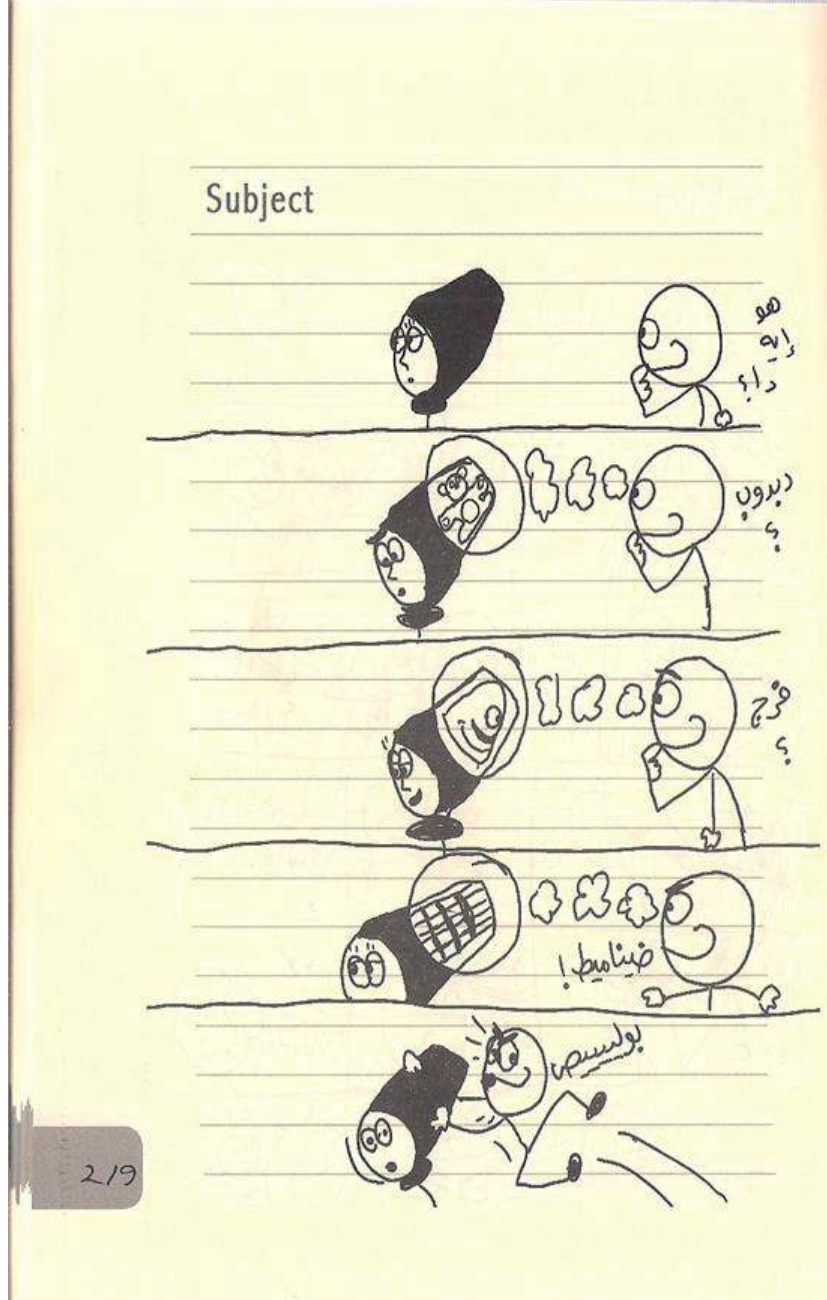 Subject
هو
إيه
دا؟
دبدوب
؟
فرج
؟
ضيناميط!
بوليسيص
219